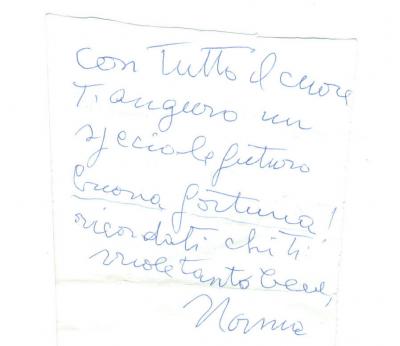 con tutto il cuore
Ti auguro un
speciale futuro
buona fortuna!
ricordati chi ti
vuole tanto bene,
Nonna